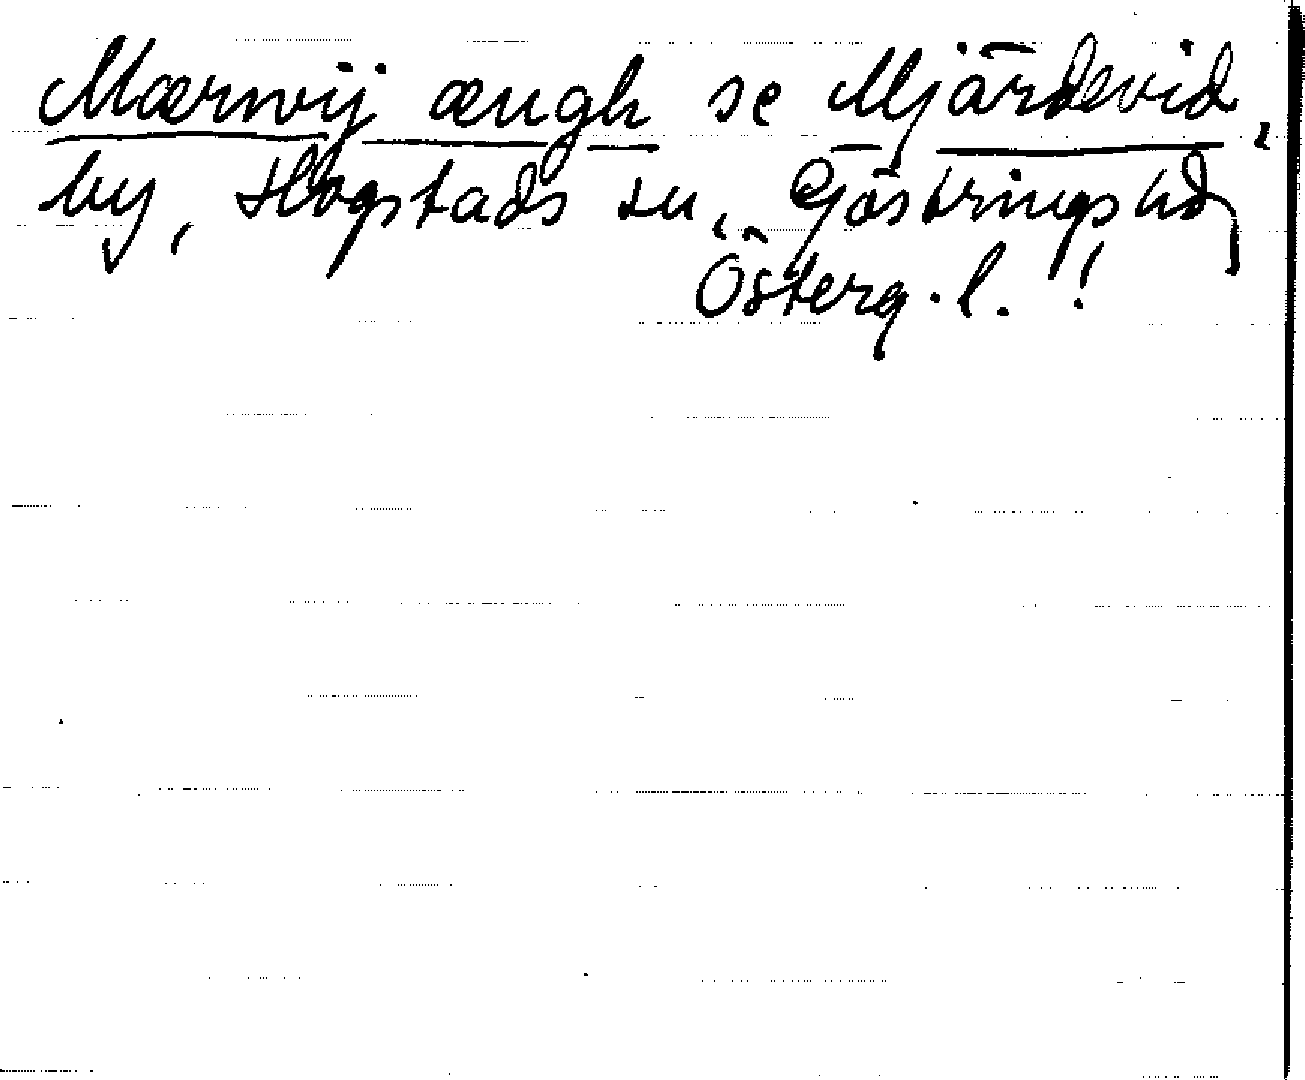 Mærwij ængh se Mjärdevid,
by, Hogstads sn, Göstrings hd,
Österg.l. !